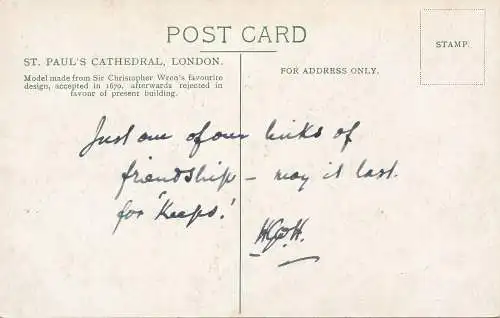 POST CARD
ST. PAUL'S CATHEDRAL, LONDON.
Model made from Sir Christopher Wren's favourite
design, accepted in 1670, afterwards rejected in
favour of present building.
FOR ADDRESS ONLY.
STAMP.
Just one of our links of
friendship – may it last.
for 'Keeps.'
H.G.W.H.